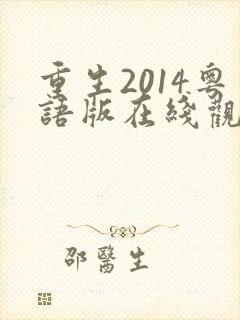 重生2014粵
語版在綫觀
邵醫生